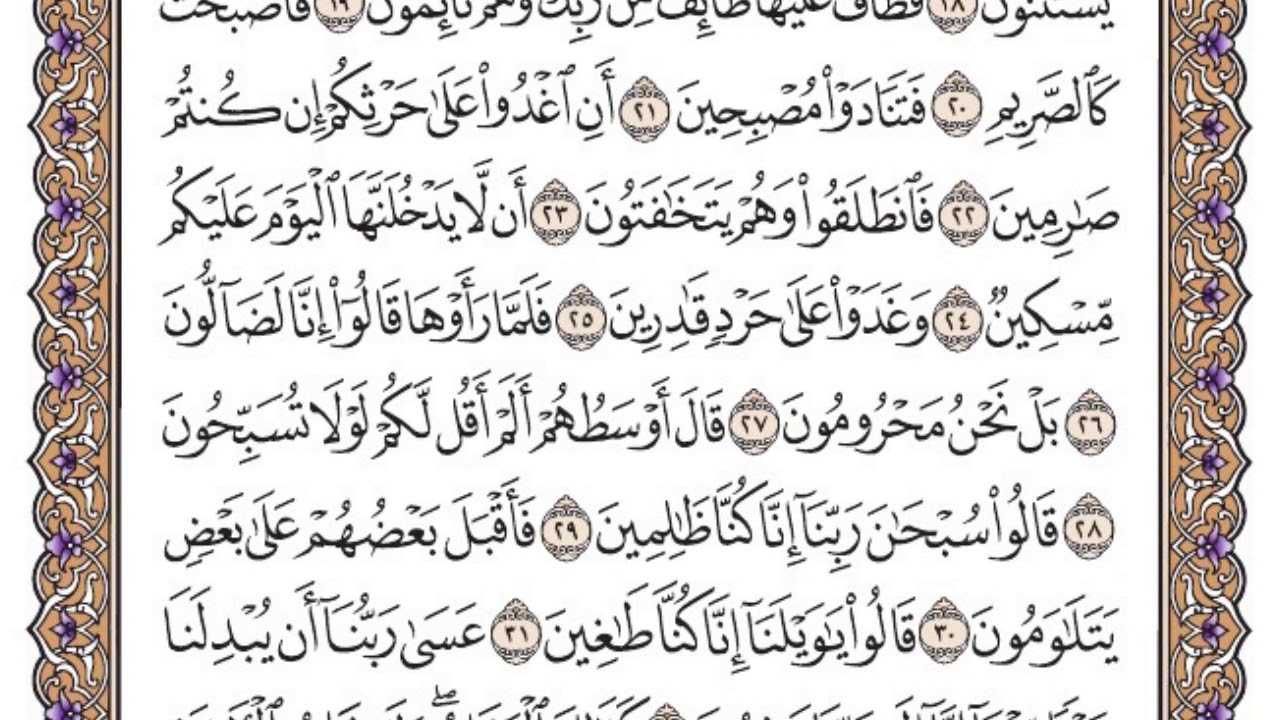 يَسْتَثْنُونَ ١٨ فَطَافَ عَلَيْهَا طَآئِفٌ مِّن رَّبِّكَ وَهُمْ نَآئِمُونَ ١٩ فَأَصْبَحَتْ
كَٱلصَّرِيمِ ٢٠ فَتَنَادَوْا۟ مُصْبِحِينَ ٢١ أَنِ ٱغْدُوا۟ عَلَىٰ حَرْثِكُمْ إِن كُنتُمْ
صَٰرِمِينَ ٢٢ فَٱنطَلَقُوا۟ وَهُمْ يَتَخَٰفَتُونَ ٢٣ أَن لَّا يَدْخُلَنَّهَا ٱلْيَوْمَ عَلَيْكُم
مِّسْكِينٌ ٢٤ وَغَدَوْا۟ عَلَىٰ حَرْدٍ قَٰدِرِينَ ٢٥ فَلَمَّا رَأَوْهَا قَالُوٓا۟ إِنَّا لَضَآلُّونَ
٢٦ بَلْ نَحْنُ مَحْرُومُونَ ٢٧ قَالَ أَوْسَطُهُمْ أَلَمْ أَقُل لَّكُمْ لَوْلَا تُسَبِّحُونَ
٢٨ قَالُوا۟ سُبْحَٰنَ رَبِّنَآ إِنَّا كُنَّا ظَٰلِمِينَ ٢٩ فَأَقْبَلَ بَعْضُهُمْ عَلَىٰ بَعْضٍ
يَتَلَٰوَمُونَ ٣٠ قَالُوا۟ يَٰوَيْلَنَآ إِنَّا كُنَّا طَٰغِينَ ٣١ عَسَىٰ رَبُّنَآ أَن يُبْدِلَنَا